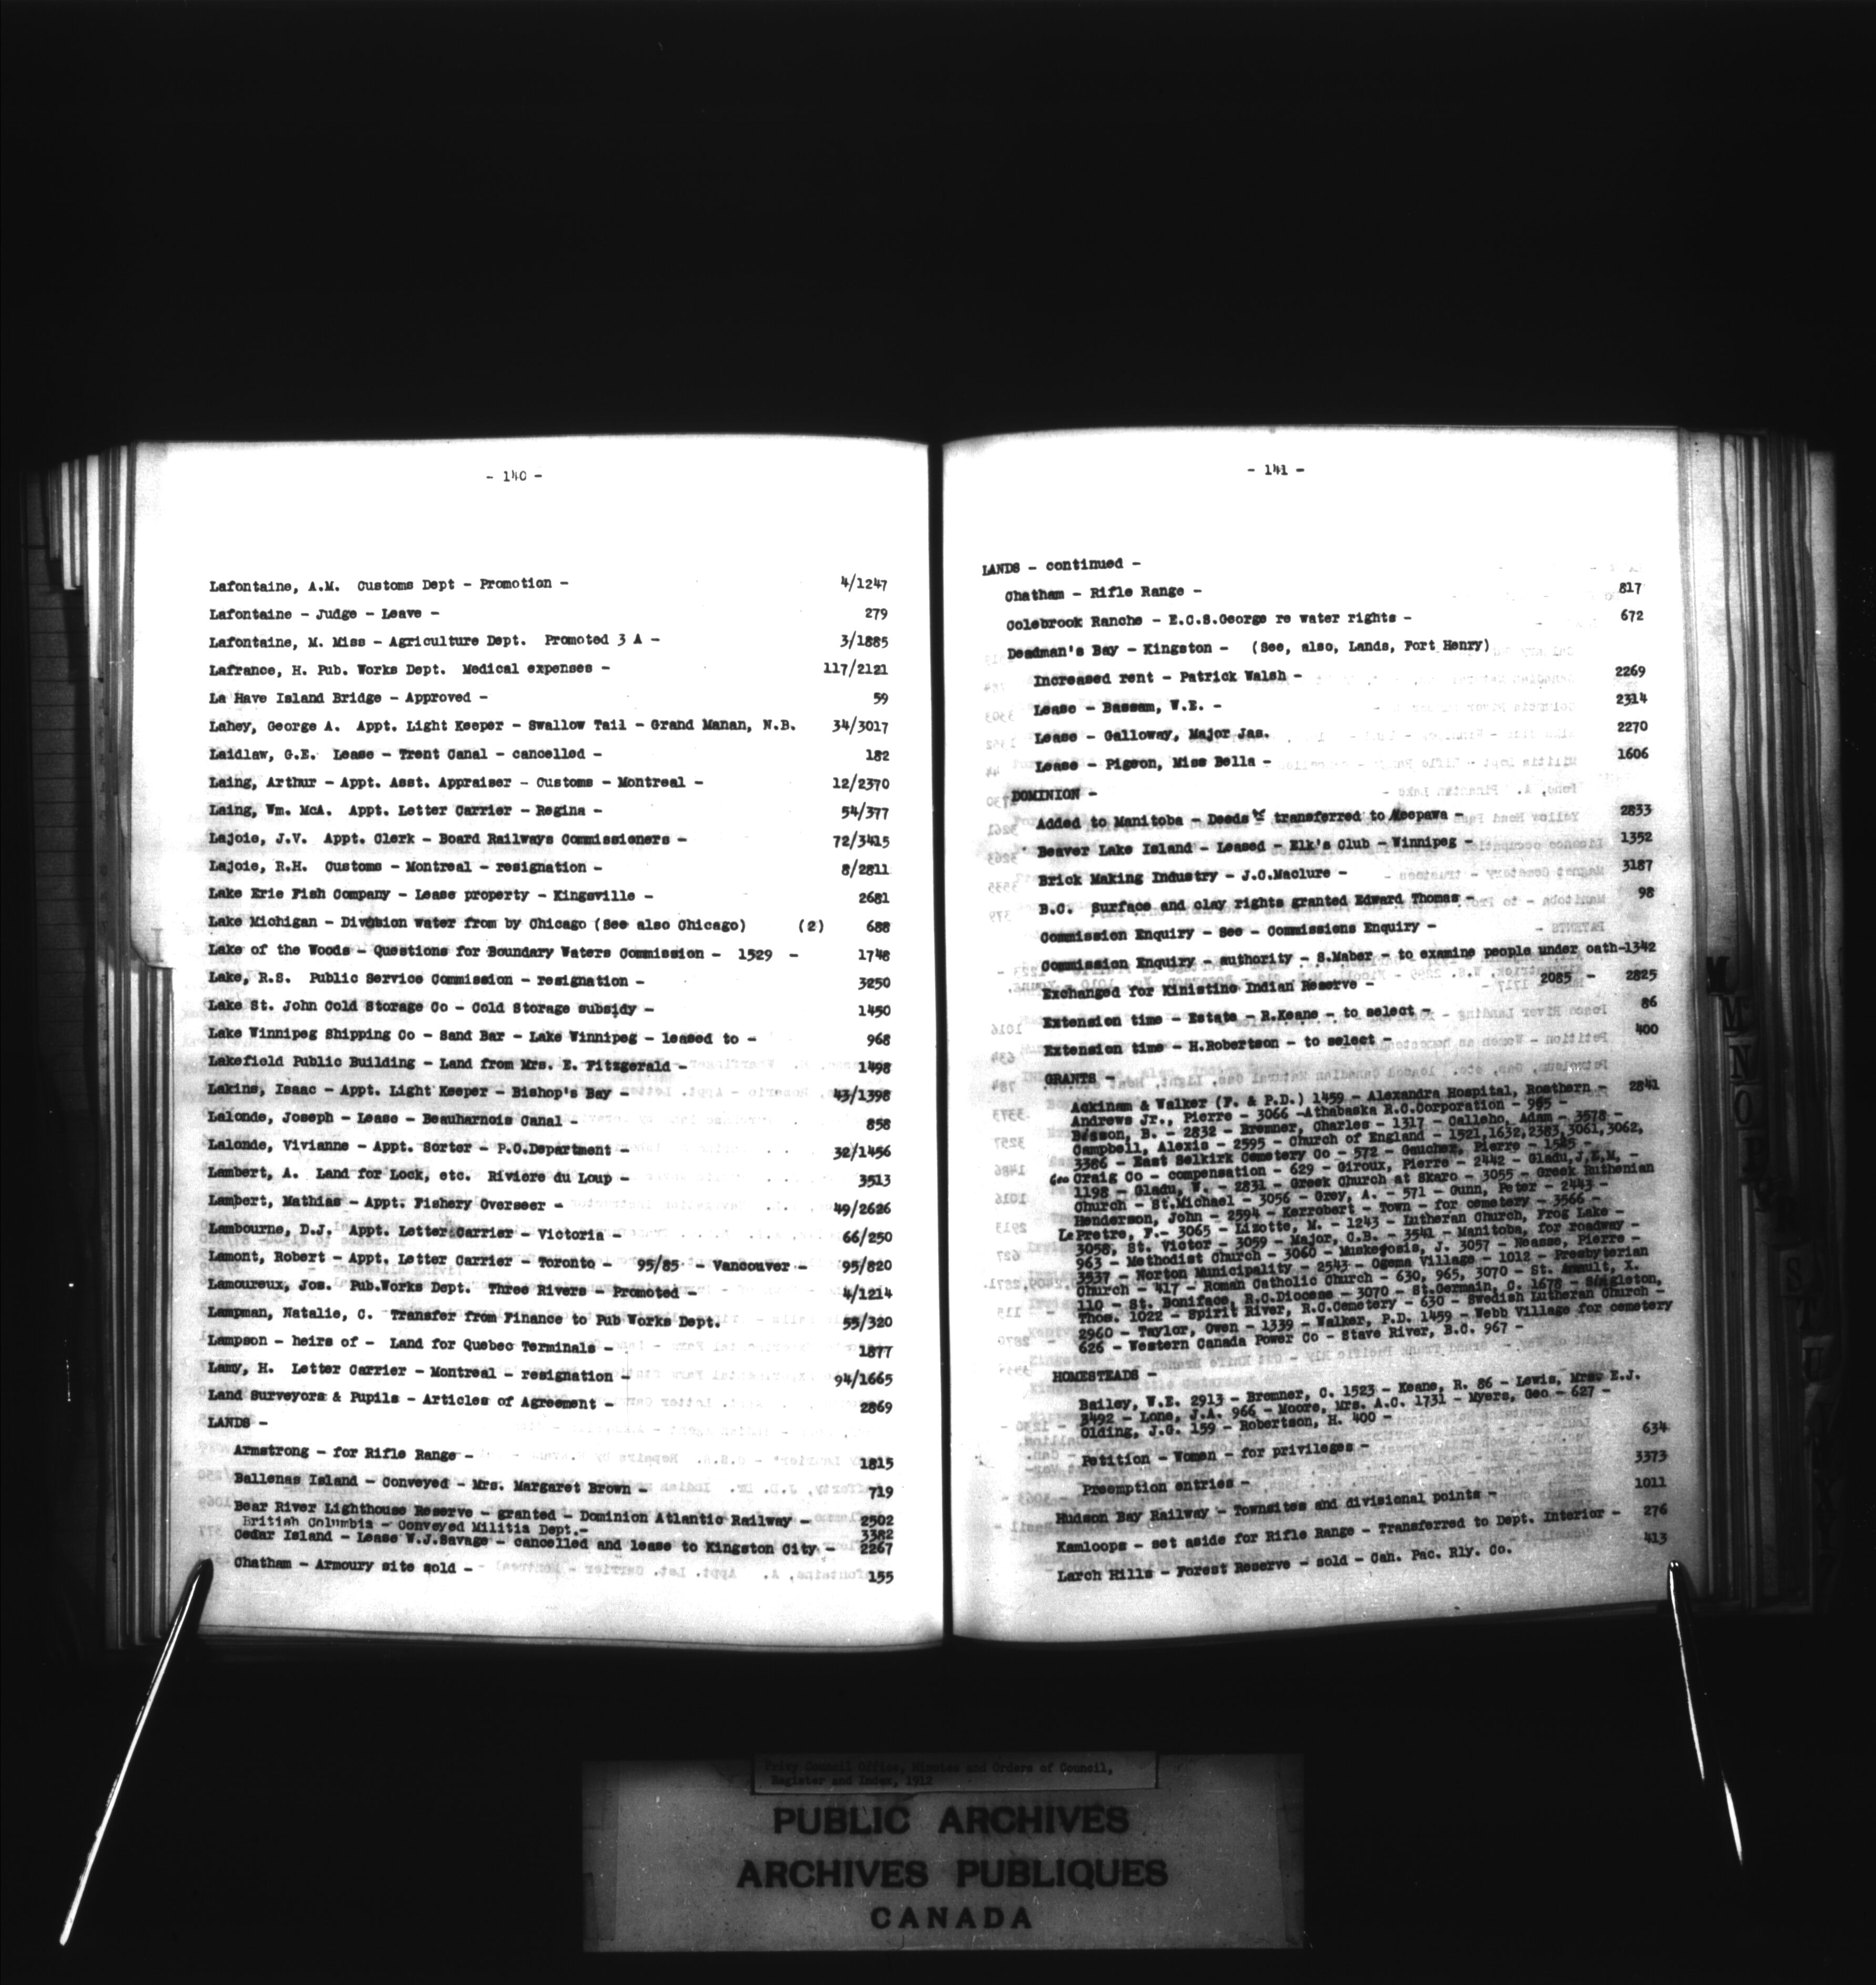 - 140 -
Lafontaine, A.M. Customs Dept - Promotion - 4/1247
Lafontaine - Judge - Leave - 279
Lafontaine, M. Miss - Agriculture Dept. Promoted 3 A - 3/1885
Lafrance, H. Pub. Works Dept. Medical expenses - 117/2121
La Have Island Bridge - Approved - 59
Lahey, George A. Appt. Light Keeper - Swallow Tail - Grand Manan, N.B. 34/3017
Laidlaw, G.E. Lease - Trent Canal - cancelled - 182
Laing, Arthur - Appt. Asst. Appraiser - Customs - Montreal - 12/2370
Laing, Wm. McA. Appt. Letter Carrier - Regina - 54/377
Lajoie, J.V. Appt. Clerk - Board Railways Commissioners - 72/3415
Lajoie, R.H. Customs - Montreal - resignation - 8/2811
Lake Erie Fish Company - Lease property - Kingsville - 2681
Lake Michigan - water from by Chicago (See also Chicago) (2) 688
Lake of the Woods - Questions for Boundary Waters Commission - 1529 - 1748
Lake, R.S. Public Service Commission - resignation - 3250
Lake St. John Cold Storage Co - Cold Storage subsidy - 1450
Lake Winnipeg Shipping Co - Sand Bar - Lake Winnipeg - leased to - 968
Lakefield Public Building - Land from Mrs. E. Fitzgerald - 1498
Lakins, Isaac - Appt. Light Keeper - Bishop's Bay - 43/1398
Lalonde, Joseph - Lease - Beauharnois Canal - 858
Lalonde, Vivianne - Appt. Sorter - P.O.Department - 32/1456
Lambert, A. Land for Lock, etc. Riviere du Loup - 3513
Lambert, Mathias - Appt. Fishery Overseer - 49/2626
Lambourne, D.J. Appt. Letter Carrier - Victoria - 66/250
Lamont, Robert - Appt. Letter Carrier - Toronto - 95/85 - Vancouver - 95/820
Lamoureux, Jos. Pub.Works Dept. Three Rivers - Promoted - 4/1214
Lampman, Natalie, C. Transfer from Finance to Pub Works Dept. 55/320
Lampson - heirs of - Land for Quebec Terminals - 1877
Lamy, H. Letter Carrier - Montreal - resignation - 94/1665
Land Surveyors & Pupils - Articles of Agreement - 2869
LANDS -
Armstrong - for Rifle Range - 1815
Ballenas Island - Conveyed - Mrs. Margaret Brown - 719
Bear River Lighthouse Reserve - granted - Dominion Atlantic Railway - 2502
British Columbia - Conveyed Militia Dept.- 3382
Cedar Island - Lease W.J.Savage - cancelled and lease to Kingston City - 2267
Chatham - Armoury site sold - 155
- 141 -
LANDS - continued -
Chatham - Rifle Range - 817
Colebrook Ranche - E.C.S.George re water rights - 672
Deadman's Bay - Kingston - (See, also, Lands, Fort Henry)
Increased rent - Patrick Walsh - 2269
Lease - Bassam, W.E. - 2314
Lease - Galloway, Major Jas. 2270
Lease - Pigeon, Miss Bella - 1606
DOMINION -
Added to Manitoba - Deeds transferred to Neepawa - 2833
Beaver Lake Island - Leased - Elk's Club - Winnipeg - 1352
Brick Making Industry - J.C.Maclure - 3187
B.C. Surface and clay rights granted Edward Thomas - 98
Commission Enquiry - See - Commissions Enquiry -
Commission Enquiry - authority - S.Maber - to examine people under oath-1342
Exchanged for Kinistino Indian Reserve - 2085 - 2825
Extension time - Estate - R.Keane - to select - 86
Extension time - H.Robertson - to select - 400
GRANTS -
Ackinam & Walker (F. & P.D.) 1459 - Alexandra Hospital, Rosthern - 2841
Andrews Jr., Pierre - 3066 -Athabaska R.C.Corporation - 965 -
Besson, B. - 2832 - Bremner, Charles - 1317 - Calleho, Adam - 3578 -
Campbell, Alexis - 2595 - Church of England - 1521,1632,2383,3061,3062,
3386 - East Selkirk Cemetery Co - 572 - Gaucher, Pierre - 1525 -
Geo Craig Co - compensation - 629 - Giroux, Pierre - 2442 - Gladu,J,E,M, -
1198 - Gladu, W. - 2831 - Greek Church at Skaro - 3055 - Greek Ruthenian
Church - St.Michael - 3056 - Grey, A. - 571 - Gunn, Peter - 2443 -
Henderson, John - 2594 - Kerrobert - Town - for cemetery - 3566 -
LePretre, F.- 3065 - Lizotte, M. - 1243 - Lutheran Church, Frog Lake -
3058, St. Victor - 3059 - Major, C.B. - 3541 - Manitoba, for roadway -
963 - Methodist Church - 3060 - Muskegosis, J. 3057 - Noasse, Pierre -
3537 - Norton Municipality - 2543 - Ogema Village - 1012 - Presbyterian
Church - 417 - Roman Catholic Church - 630, 965, 3070 - St. X.
110 - St. Boniface, R.C.Diocese - 3070 - St.Germain, C. 1678 - Singleton,
Thos. 1022 - Spirit River, R.C.Cemetery - 630 - Swedish Lutheran Church -
2960 - Taylor, Owen - 1339 - Walker, P.D. 1459 - Webb Village for cemetery
626 - Western Canada Power Co - Stave River, B.C. 967 -
HOMESTEADS -
Bailey, W.E. 2913 - Bremner, C. 1523 - Keane, R. 86 - Lewis, Mrs. E.J.
3492 - Lone, J.A. 966 - Moore, Mrs. A.C. 1731 - Myers, Geo - 627 -
Olding, J.G. 159 - Robertson, H. 400 -
Petition - Women - for privileges - 634
Preemption entries - 3373
Hudson Bay Railway - Townsites and divisional points - 1011
Kamloops - set aside for Rifle Range - Transferred to Dept. Interior - 276
Larch Hills - Forest Reserve - sold - Can. Pac. Rly. Co. 413
M
N
O
Privy Council Office, Minutes and Orders of Council,
Register and Index, 1912
PUBLIC ARCHIVES
ARCHIVES PUBLIQUES
CANADA